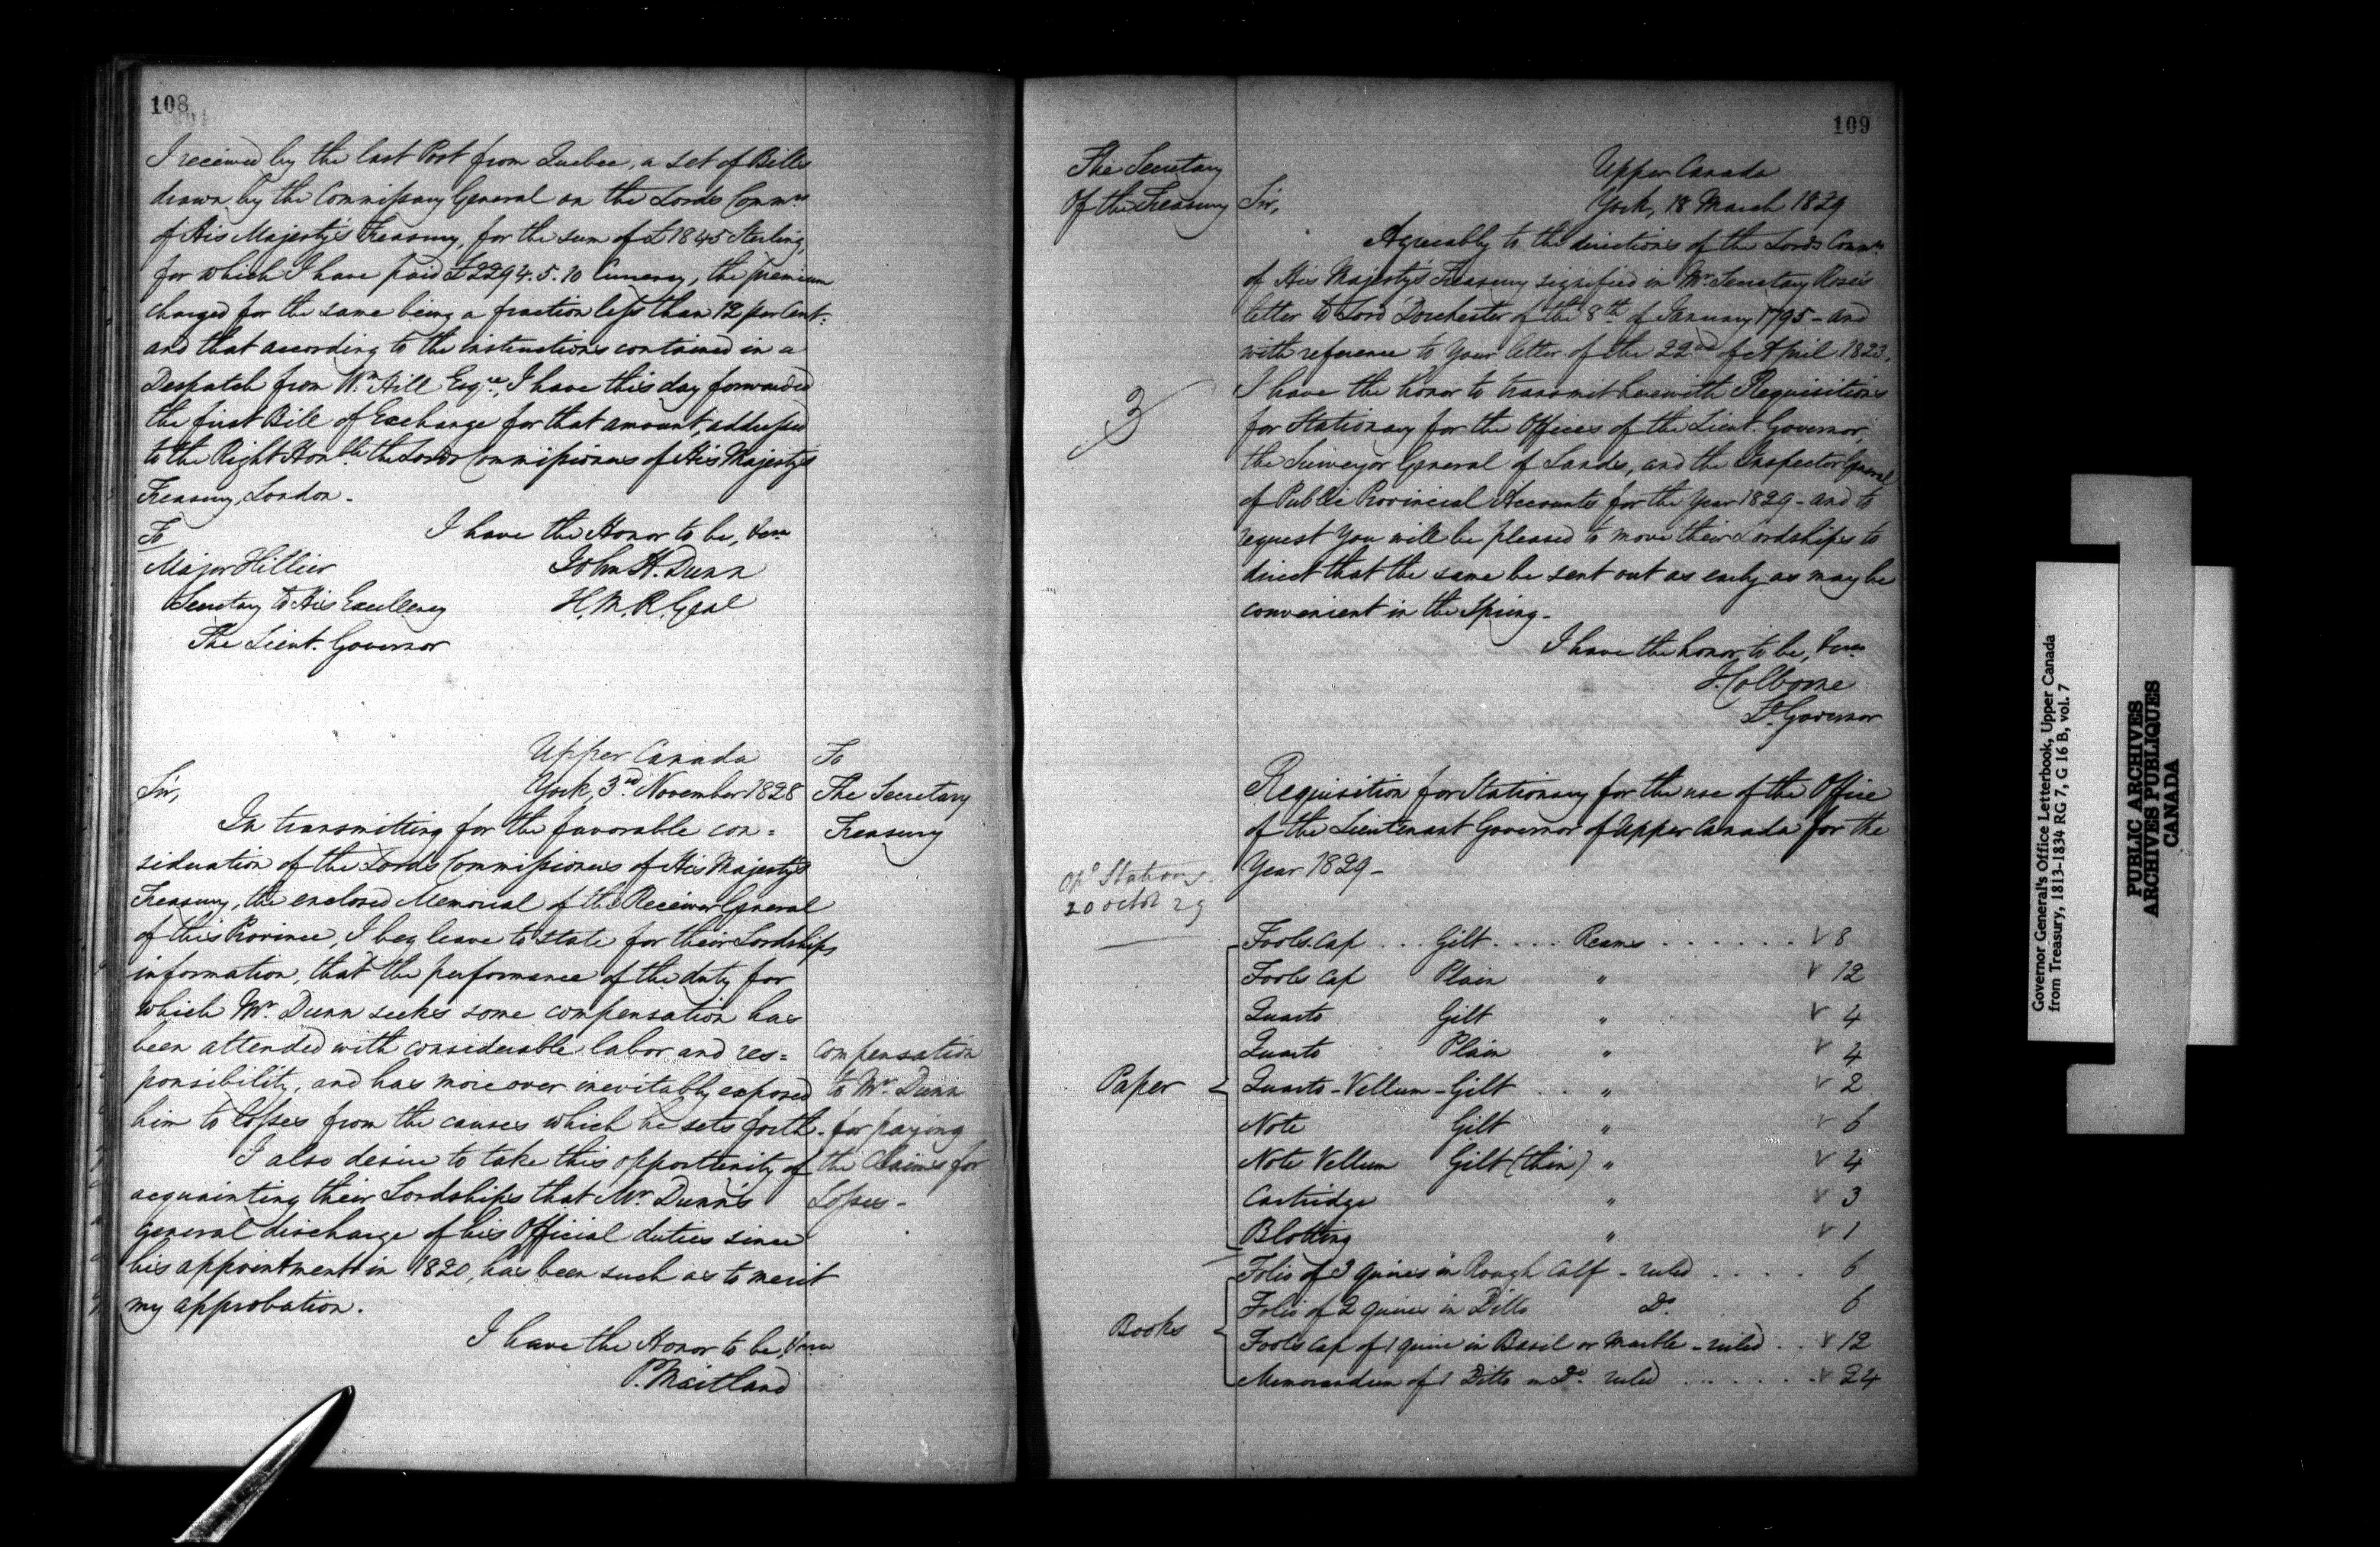 108
I received by the last Post from Quebec, a set of Bills
drawn by the Commissary General on the Lords Commrs
of His Majesty's Treasury, for the sum of £1845 Sterling,
for which I have paid £2294.5.10 Currency, the premium
charged for the same being a fraction less than 12 per Cent:
and that according to the instructions contained in a
Despatch from Wm Hill Esqre, I have this day forwarded
the first Bill of Exchange for that amount, addressed
to the Right Honble the Lords Commissioners of His Majesty's
Treasury, London.
To
I have the Honor to be, &ca
Major Hillier
John H. Dunn
Secretary to His Excellency
H.M.R. Genl
The Lieut. Governor
Upper Canada
York, 3rd November 1828
To
The Secretary
Treasury
Sir,
In transmitting for the favorable con=
sideration of the Lords Commissioners of His Majesty's
Treasury, the enclosed Memorial of the Receiver General
of this Province, I beg leave to state for their Lordships
information, that the performance of the duty for
which Mr. Dunn seeks some compensation has
been attended with considerable labor and res=
ponsibility, and has more over inevitably exposed
him to losses from the causes which he sets forth.
I also desire to take this opportunity of
acquainting their Lordships that Mr. Dunn's
general discharge of his Official duties since
his appointment in 1820, has been such as to merit
my approbation.
Compensation
to Mr. Dunn
for paying
the Claims for
Losses -
I have the Honor to be, &ca
P. Maitland
109
The Secretary
Of the Treasury
Upper Canada
York, 18 March 1829
Sir,
Agreeably to the directions of the Lords Commrs
of His Majesty's Treasury signified in Mr. Secretary Rose's
letter to Lord Dorchester of the 8th of January 1795 - and
with reference to Your letter of the 22nd of April 1823,
I have the honor to transmit herewith Requisitions
for Stationary for the Offices of the Lieut. Governor,
the Surveyor General of Lands, and the Inspector General
of Public Provincial Accounts for the Year 1829 - and to
request You will be pleased to move their Lordships to
direct that the same be sent out as early as may be
convenient in the Spring.
3
I have the honor to be, &ca
J. Colborne
Lt. Governor
Requisition for Stationary for the use of the Office
of the Lieutenant Governor of Upper Canada for the
Year 1829 -
20 octor 29
Paper
Fools Cap . . . Gilt . . . . Reams . . . . . . . ✓ 8
Fools Cap Plain " ✓ 12
Quarto Gilt " ✓ 4
Quarto Plain " ✓ 4
Quarto - Vellum - Gilt . . . " ✓ 2
Note Gilt " ✓ 6
Note Vellum Gilt (thin) " ✓ 4
Cartridge " ✓ 3
Blotting " ✓ 1
Books
Folio of 3 quires in Rough Calf - ruled . . . . 6
Folio of 2 quires in Ditto Do. 6
Fools Cap of 1 quire in Basil or Marble - ruled . . ✓ 12
Memorandum of 1 Ditto in Do. ruled . . . . . . . ✓ 24
Governor General's Office Letterbook, Upper Canada
from Treasury, 1813-1834 RG 7, G 16 B, vol. 7
PUBLIC ARCHIVES
ARCHIVES PUBLIQUES
CANADA